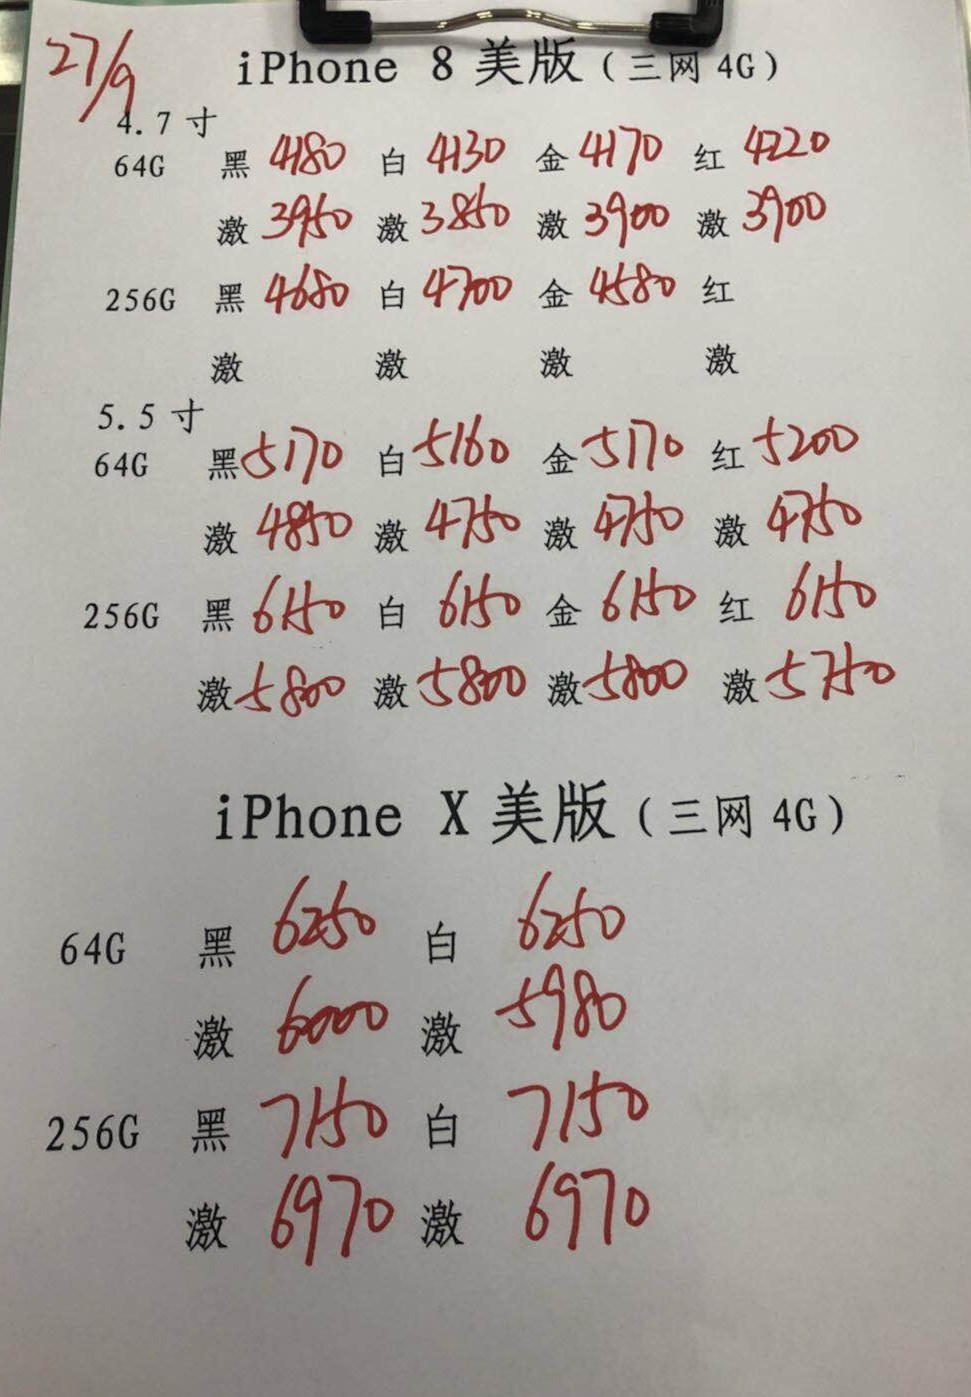 27/9
iPhone 8 美版（三网 4G）
4.7 寸
64G 黑 4180 白 4130 金 4170 红 4220
激 3950 激 3850 激 3900 激 3900
256G 黑 4680 白 4700 金 4580 红
激 激 激 激
5.5 寸
64G 黑 5170 白 5160 金 5170 红 5200
激 4850 激 4750 激 4750 激 4750
256G 黑 6150 白 6150 金 6150 红 6150
激 5800 激 5800 激 5800 激 5750
iPhone X 美版（三网 4G）
64G 黑 6250 白 6250
激 6000 激 5980
256G 黑 7150 白 7150
激 6970 激 6970